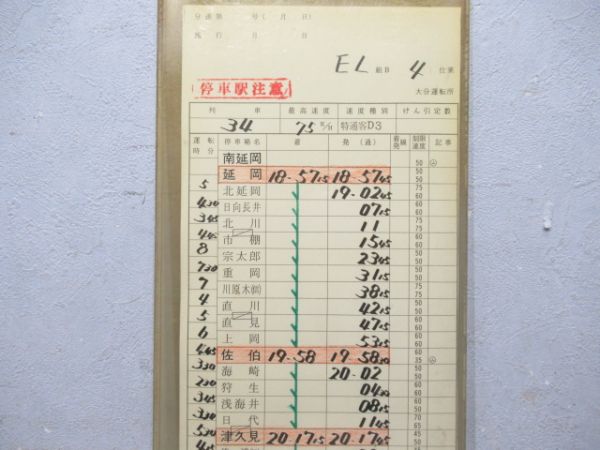 分達第 号( 月 日)
施行 月 日
EL 組B 4 仕業
停車駅注意
大分運転所
列車 最高速度 速度種別 けん引定数
34 75 特通客D3
運転時分 停車場名 着 発(通) 着発線 制限速度 記事
南延岡 50
延岡 18-57 15 18-57 45 50
5 北延岡 19-02 45
4 30 日向長井 07 15
3 45 北川 11
4 45 市棚 15 45
8 宗太郎 23 45
7 30 重岡 31 15
7 川原木(信) 38 15
4 直川 42 15
5 直見 47 15
6 上岡 53 15
4 45 佐伯 19-58 19-58 30
3 30 海崎 20-02
2 30 狩生 04 30
3 45 浅海井 08 15
3 30 日代 11 45
5 30 津久見 20-17 15 20-17 45